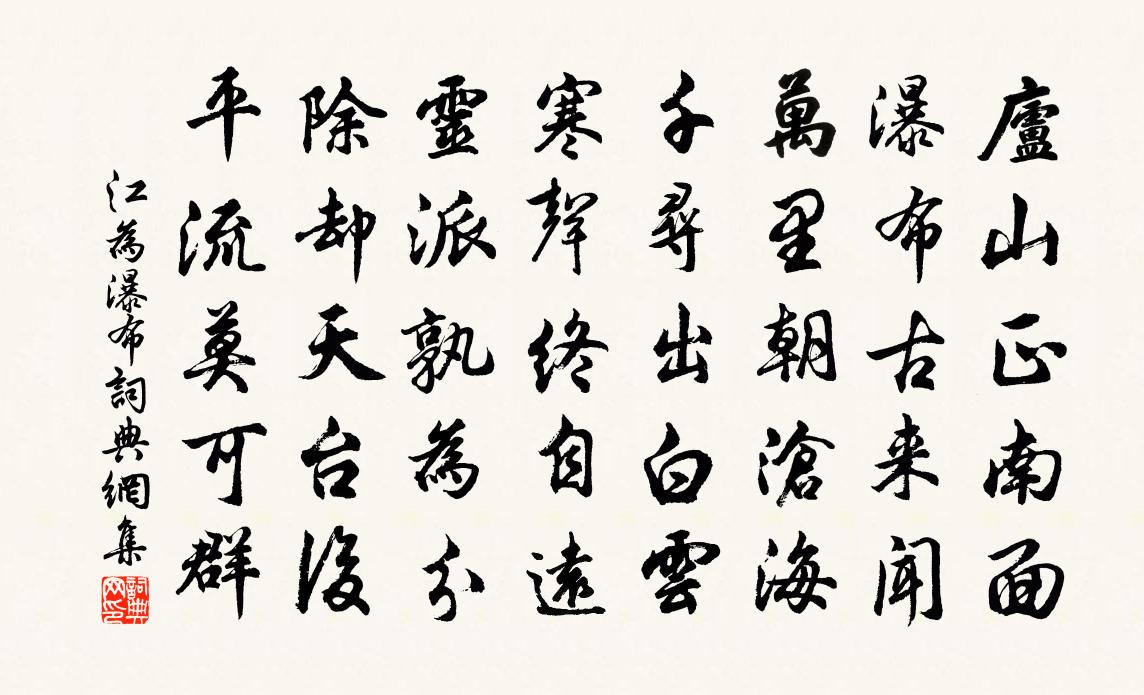 廬山正南面
瀑布古来聞
萬里朝滄海
千尋出白雲
寒聲終自遠
靈派孰為分
除却天台後
平流莫可群
江為瀑布詞典網集
詞典网印